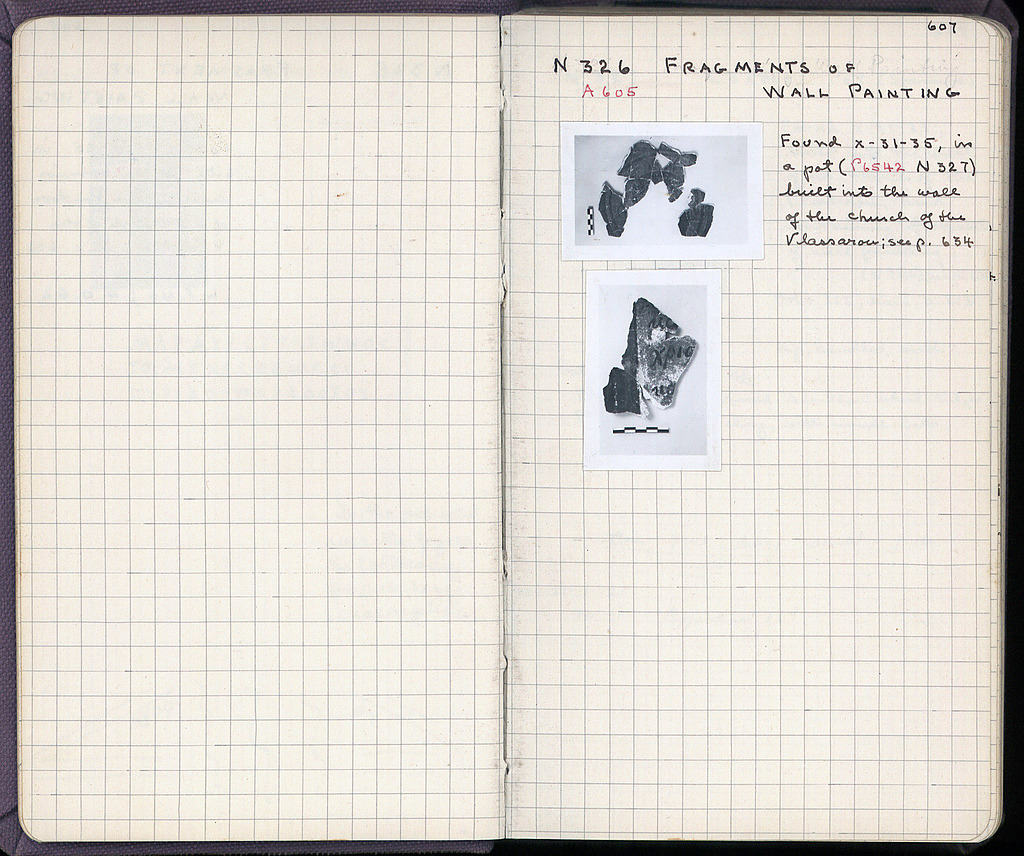 607
N 326 FRAGMENTS OF
A 605 WALL PAINTING
Found x-31-35, in
a pot (P6542 N 327)
built into the wall
of the church of the
Vlassarou; see p. 634
ΧΡΙΟ